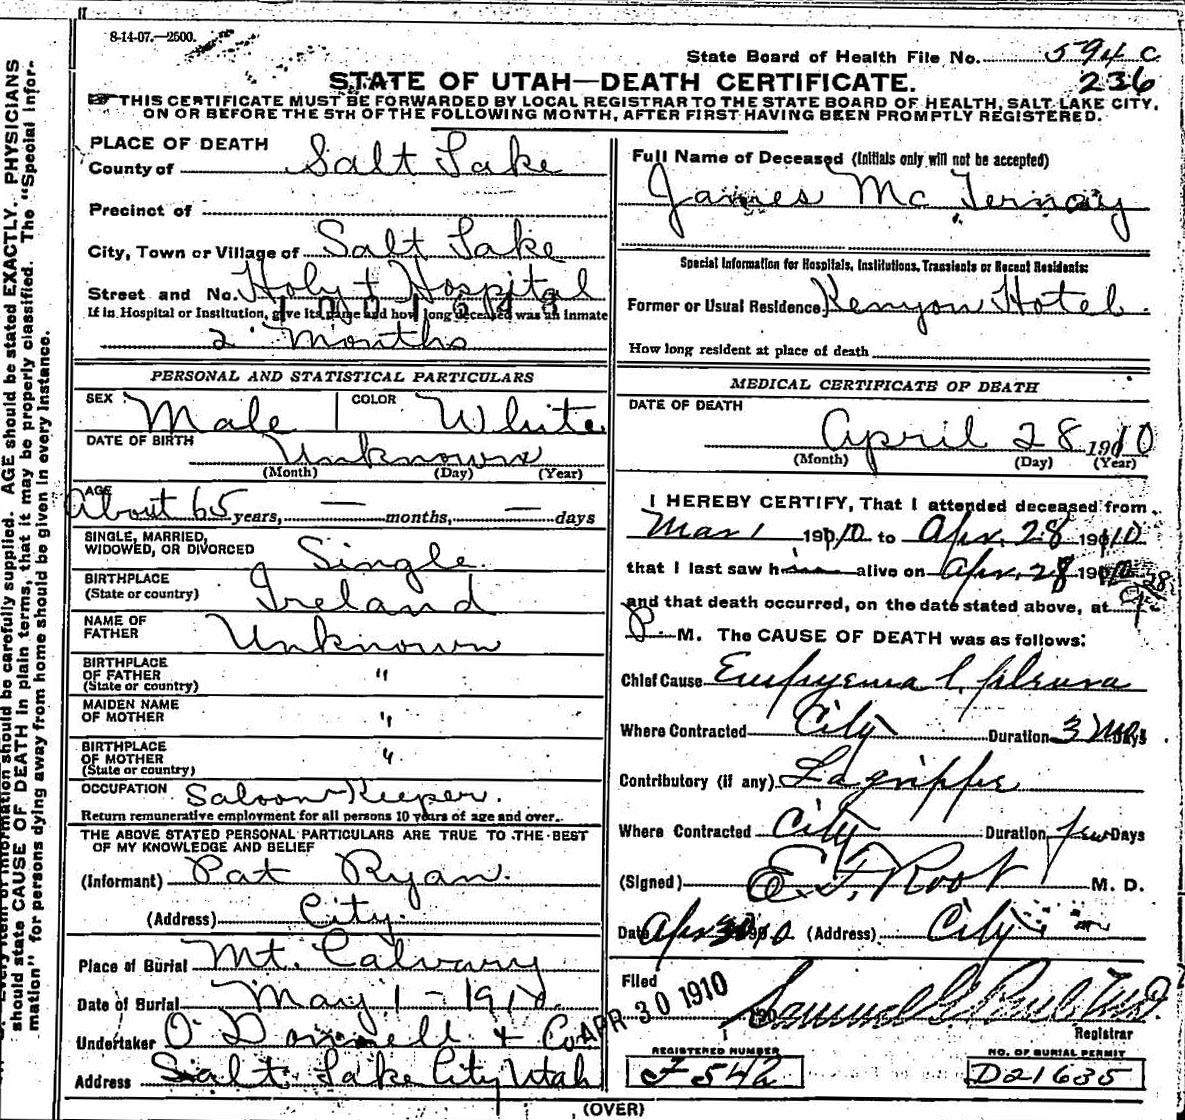 8-14-07.—2500.
State Board of Health File No. 594 C
236
STATE OF UTAH—DEATH CERTIFICATE.
THIS CERTIFICATE MUST BE FORWARDED BY LOCAL REGISTRAR TO THE STATE BOARD OF HEALTH, SALT LAKE CITY,
ON OR BEFORE THE 5TH OF THE FOLLOWING MONTH, AFTER FIRST HAVING BEEN PROMPTLY REGISTERED.
PLACE OF DEATH
County of Salt Lake
Precinct of
City, Town or Village of Salt Lake
Street and No. Holy + Hospital
If in Hospital or Institution, give its name and how long deceased was an inmate
2 Months
PERSONAL AND STATISTICAL PARTICULARS
SEX Male COLOR White
DATE OF BIRTH Unknown
(Month) (Day) (Year)
AGE
About 65 years, — months, — days
SINGLE, MARRIED,
WIDOWED, OR DIVORCED Single
BIRTHPLACE
(State or country) Ireland
NAME OF
FATHER Unknown
BIRTHPLACE
OF FATHER "
(State or country)
MAIDEN NAME
OF MOTHER "
BIRTHPLACE
OF MOTHER "
(State or country)
OCCUPATION Saloon-Keeper.
Return remunerative employment for all persons 10 years of age and over.
THE ABOVE STATED PERSONAL PARTICULARS ARE TRUE TO THE BEST
OF MY KNOWLEDGE AND BELIEF
(Informant) Pat Ryan.
(Address) City.
Place of Burial Mt. Calvary
Date of Burial May 1 - 1910.
Undertaker O'Donnell & Co.
Address Salt Lake City Utah
Full Name of Deceased (Initials only will not be accepted)
James Mc Ternay
Special Information for Hospitals, Institutions, Transients or Recent Residents:
Former or Usual Residence Kenyon Hotel.
How long resident at place of death
MEDICAL CERTIFICATE OF DEATH
DATE OF DEATH
April 28 1910
(Month) (Day) (Year)
I HEREBY CERTIFY, That I attended deceased from
Mar 1 1910 to Apr. 28 1910
that I last saw him alive on Apr. 28 1910
and that death occurred, on the date stated above, at
P. M. The CAUSE OF DEATH was as follows:
Chief Cause Empyema l. pleura
Where Contracted City Duration 3 Mos Days
Contributory (if any) La grippe
Where Contracted City Duration few Days
(Signed) E. F. Root M. D.
Date Apr 30 10 (Address) City
Filed
APR 30 1910
Samuel G. Paul M.D.
Registrar
REGISTERED NUMBER
F 542
NO. OF BURIAL PERMIT
D21635
(OVER)
should state CAUSE OF DEATH in plain terms, that it may be properly classified. The "Special Infor-
mation" for persons dying away from home should be given in every instance.
information should be carefully supplied. AGE should be stated EXACTLY. PHYSICIANS